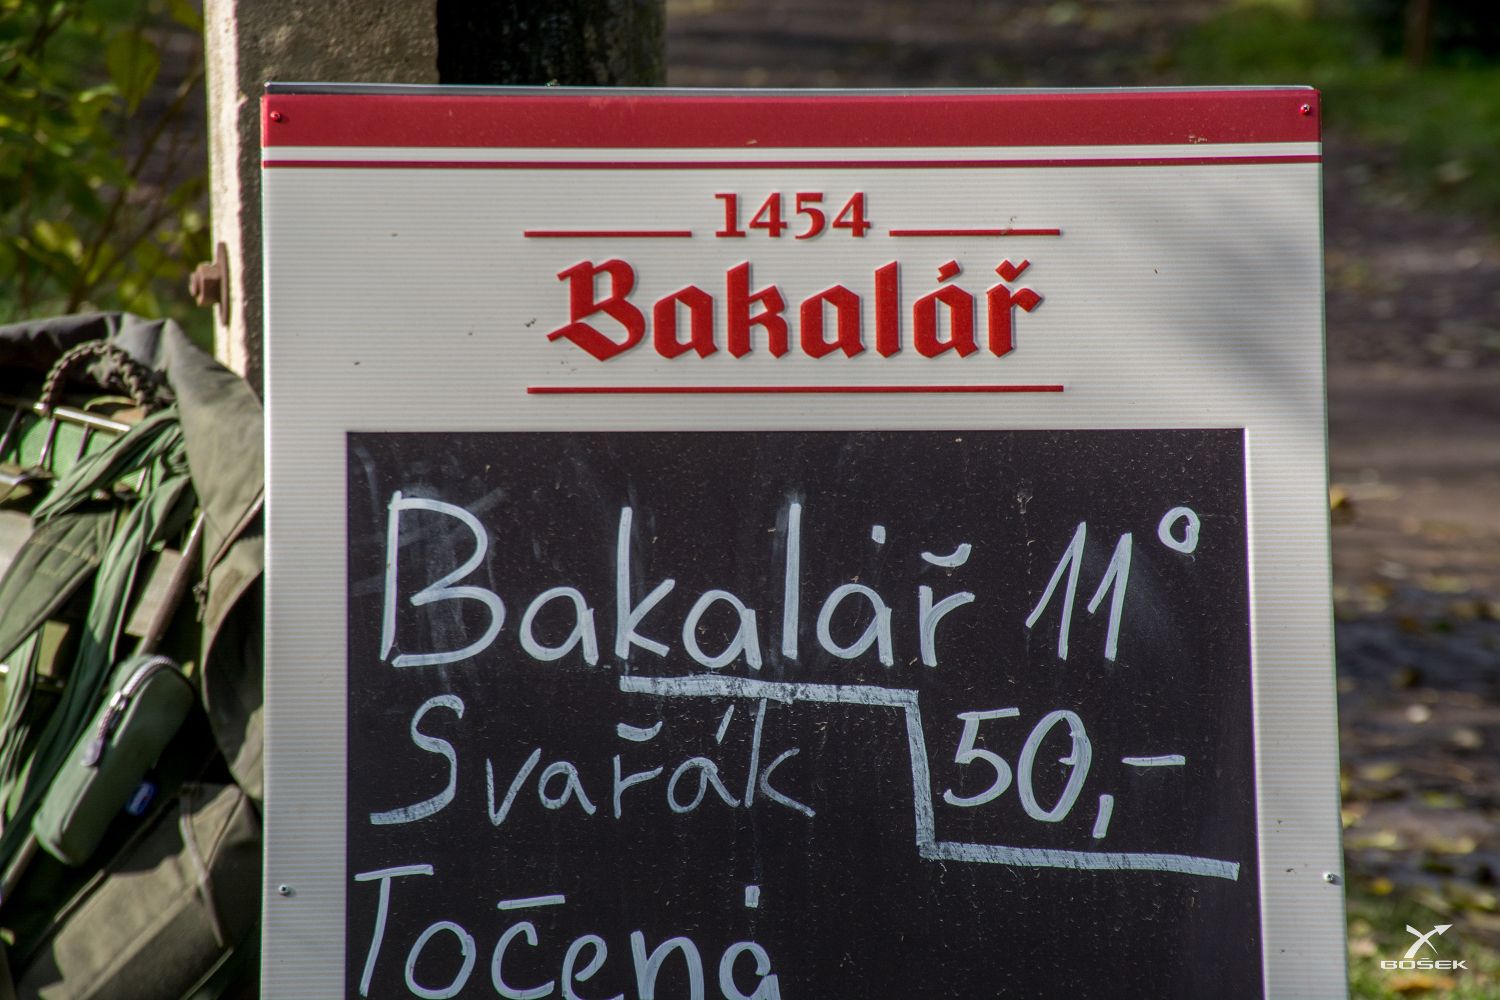 1454
Bakalář
Bakalář 11°
Svařák 50,-
Točená
BOŠEK